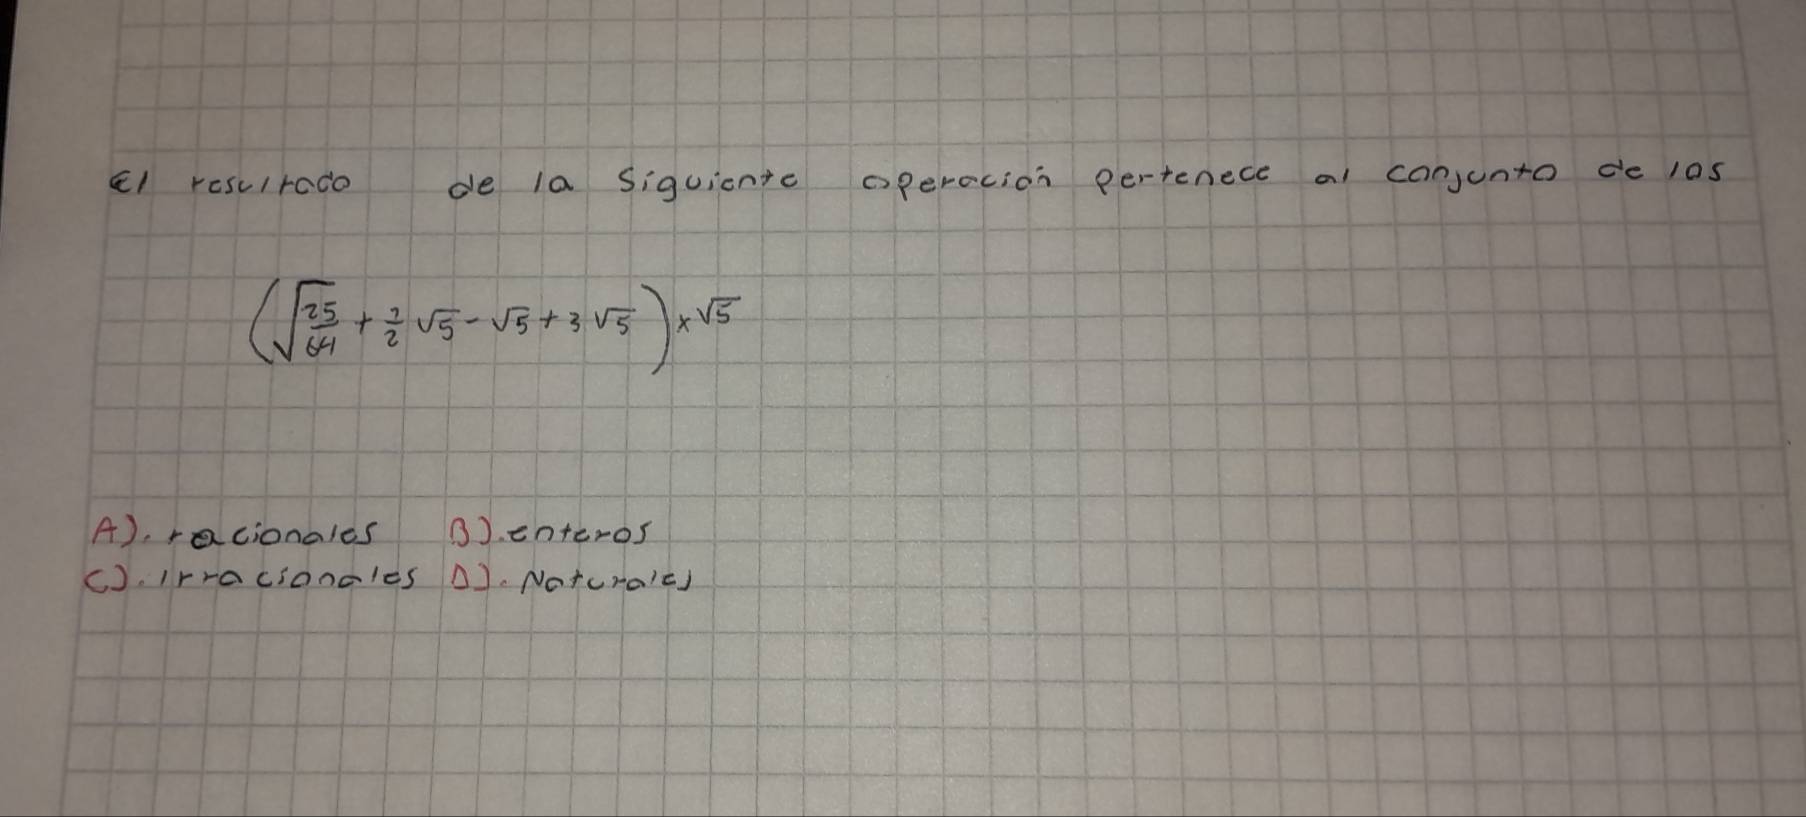 El resultado de la siguiente operación pertenece al conjunto de los
(√25/64 + 7/2 √5 - √5 + 3 √5) × √5
A). racionales B). enteros
C). irracionales D). Naturales